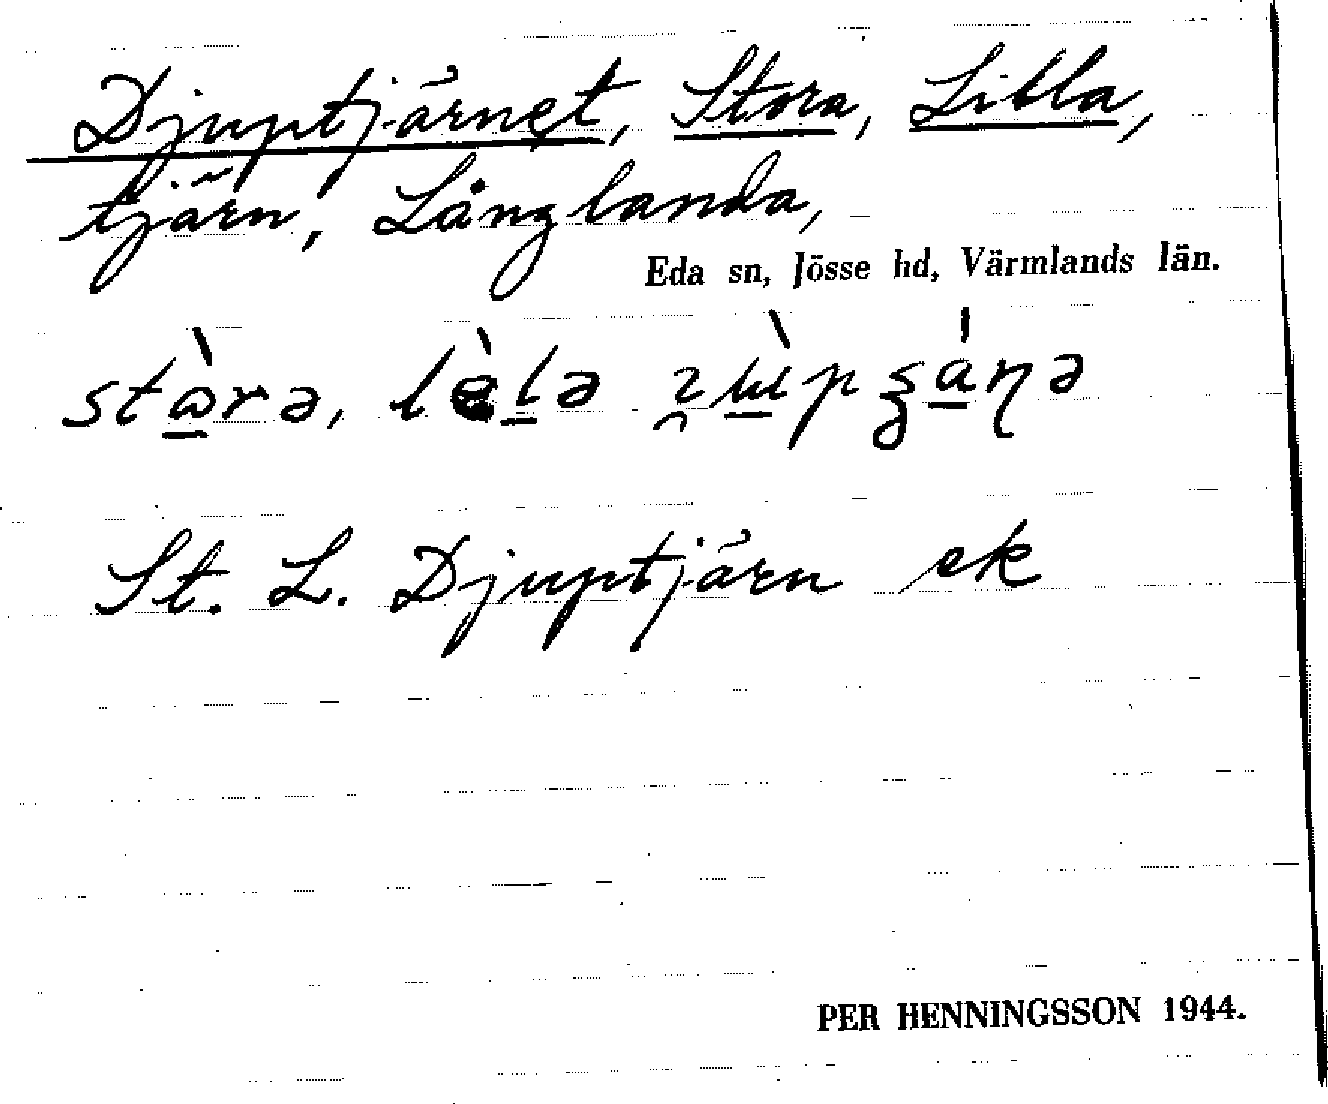 Djuptjärnet, Stora, Lilla,
tjärn, Långlanda,
Eda sn, Jösse hd, Värmlands län.
stɷ̀rə, lèlə
St. L. Djuptjärn ek
PER HENNINGSSON 1944.